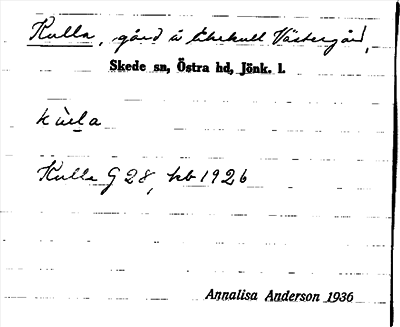 Kulla, gård i Ekekull Västergård,
Skede sn, Östra hd, Jönk. l.
kùl̲a
Kulla G 28, kb 1926
Annalisa Anderson 1936